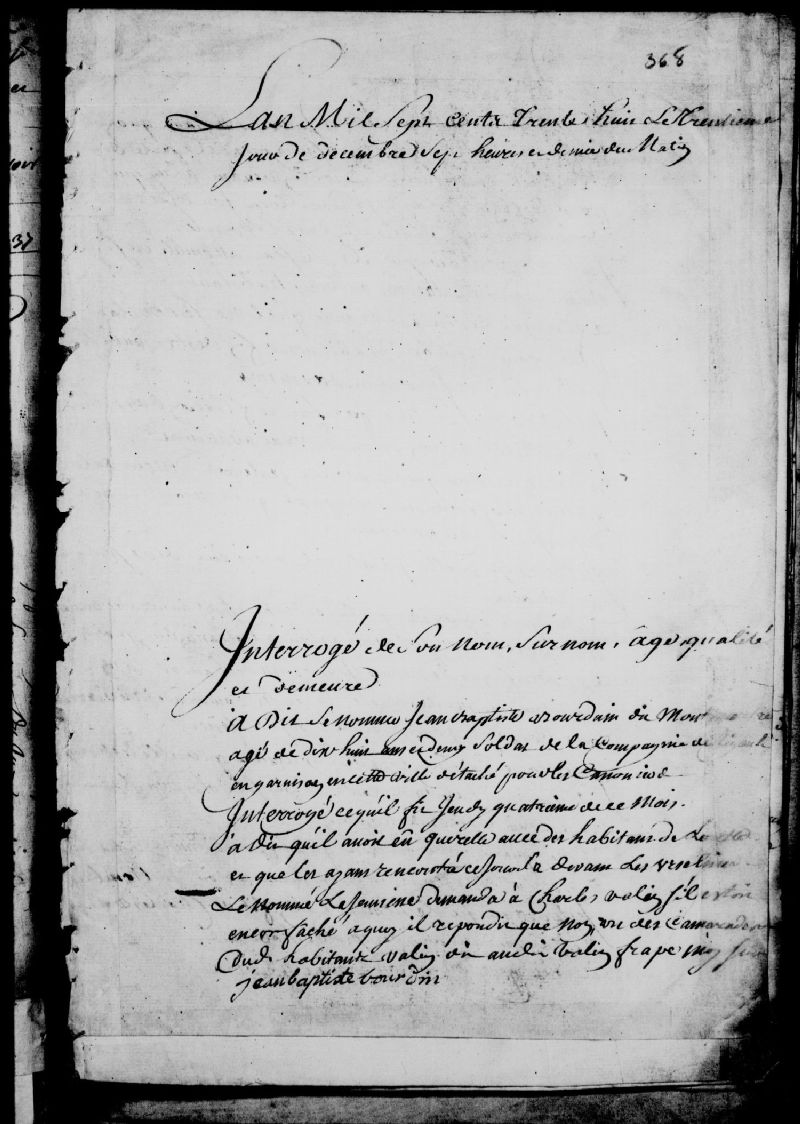 368
Lan Mil Sept Cents Trente huit Le Trentieme
Jour de decembre Sept heures et demie du Matin
Interrogé de Son nom, Surnom, âge, qualité
et demeure
A Dit Se nommer Jean Baptiste Bourdain du Mont
agé de dix huit ans et demy Soldat de la Compagnie de
en garnison en cette Ville détaché pour les Canonier
Interrogé ce qu'il fit Jeudy quatrieme de ce Mois.
a dit qu'il avoit eu querelle avec des habitans de
et que les ayant rencontré ce Jour la devant Les
Le nommé demanda à Charles valin s'il estoit
encor faché a quoy il repondit que non, un des Camarades
Dud. habitant valin dit aud. valin frape
jean baptiste bourdin
37